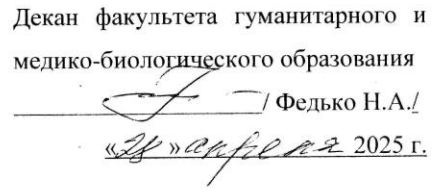 Декан факультета гуманитарного и
медико-биологического образования
/ Федько Н.А./
«28» апреля 2025 г.